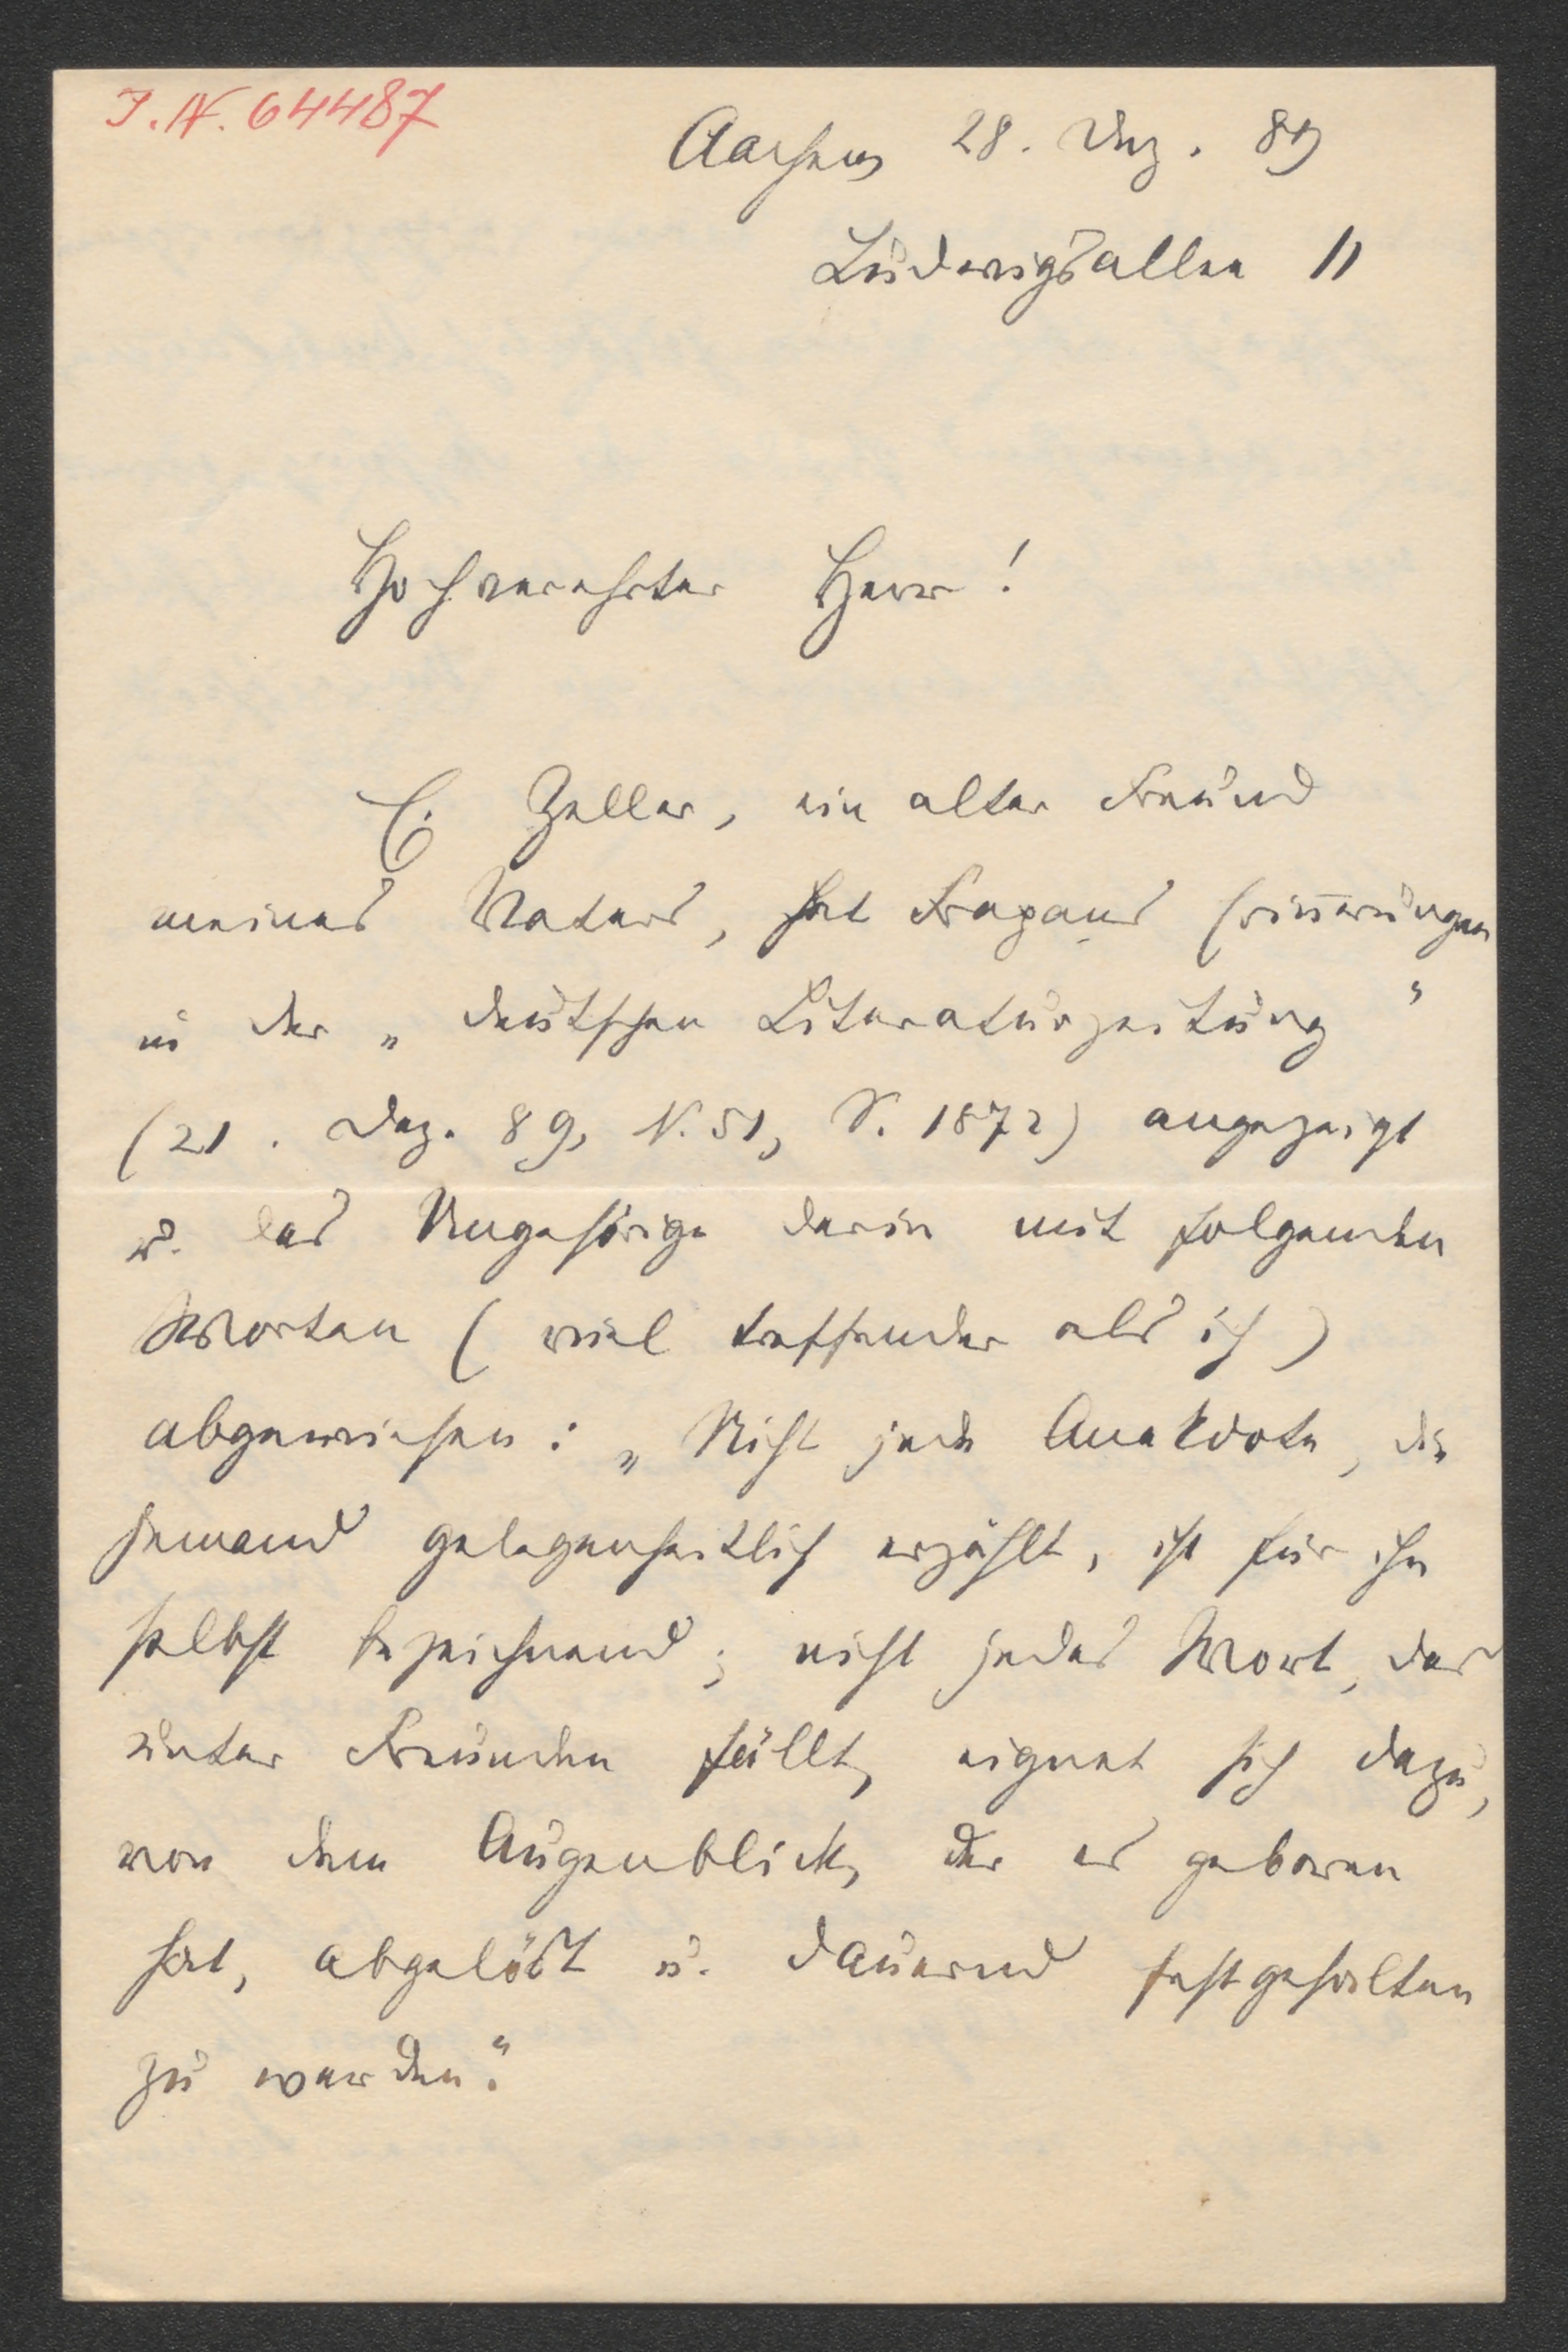 I. N. 64487
Aachen 28. Dez. 89
Ludwigsallee 11
Hochverehrter Herr!
E. Zeller, ein alter Freund
meines Vaters, hat Frapans Erinnerungen
in der „deutschen Literaturzeitung"
(21. Dez. 89, N. 51, S. 1872) angezeigt
u. das Ungehörige darin mit folgenden
Worten (viel treffender als ich)
abgewiesen: „Nicht jede Anekdote, die
jemand gelegenheitlich erzählt, ist für ihn
selbst bezeichnend; nicht jedes Wort, das
unter Freunden fällt, eignet sich dazu,
von dem Augenblick, der es geboren
hat, abgelöst u. dauernd festgehalten
zu werden."